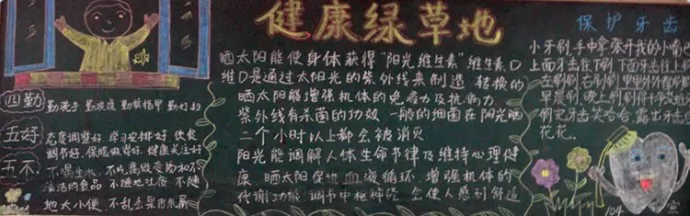 健康绿草地
四勤
勤洗手 勤 勤剪指甲 勤
五好
态度调整好 学习安排好 饮食
调节好 保暖做得好 健康关注好
五不
不喝生水 不吃腐败变质和不
洁的食品 不随地吐痰 不随
地大小便 不乱丢果皮纸屑
晒太阳能使身体获得"阳光维生素"维生素D
维D是通过太阳光的紫外线来制造 转换的
晒太阳能增强机体的免疫力及抗病力
紫外线有杀菌的功效 一般的细菌在阳光晒
二个小时以上都会被消灭
阳光能调解人体生命节律及维持心理健
康 晒太阳 血液循环 增强机体的
代谢功能 调节中枢神经 会使人感到舒适
保护牙齿
小牙刷手中拿 张开我的小嘴
上面牙齿往下刷 下面牙齿往上
左刷刷右刷刷 里里外外
早晨刷 晚上刷 刷得干净没
刷完牙齿笑哈哈 露出牙齿
花花